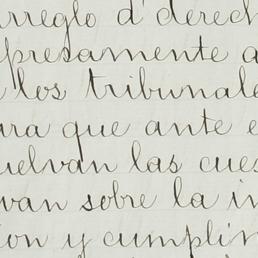 rreglo d'derech
presamente a
los tribunale
ara que ante e
uelvan las cues
van sobre la in
ion y cumplim